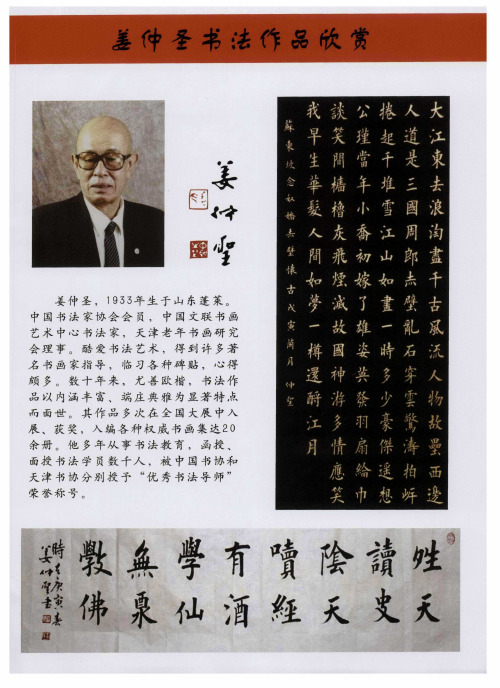 姜仲圣书法作品欣赏
姜仲聖
姜仲圣,1933年生于山东蓬莱。
中国书法家协会会员,中国文联书画
艺术中心书法家,天津老年书画研究
会理事。酷爱书法艺术,得到许多著
名书画家指导,临习各种碑贴,心得
颇多。数十年来,尤善欧楷,书法作
品以内涵丰富、端庄典雅为显著特点
而面世。其作品多次在全国大展中入
展、获奖,入编各种权威书画集达20
余册。他多年从事书法教育,函授、
面授书法学员数千人,被中国书协和
天津书协分别授予“优秀书法导师”
荣誉称号。
大江東去浪淘盡千古風流人物故壘西邊
人道是三國周郎赤壁亂石穿雲驚濤拍岸
捲起千堆雪江山如畫一時多少豪傑遥想
公瑾當年小喬初嫁了雄姿英發羽扇綸巾
談笑間檣櫓灰飛煙滅故國神游多情應笑
我早生華髮人間如夢一樽還酹江月
蘇東坡念奴嬌赤壁懷古戊寅蘭月 仲聖
姓天
讀史
陰天
經
有酒
學仙
無泉
斆佛
時在庚寅春
姜仲聖書